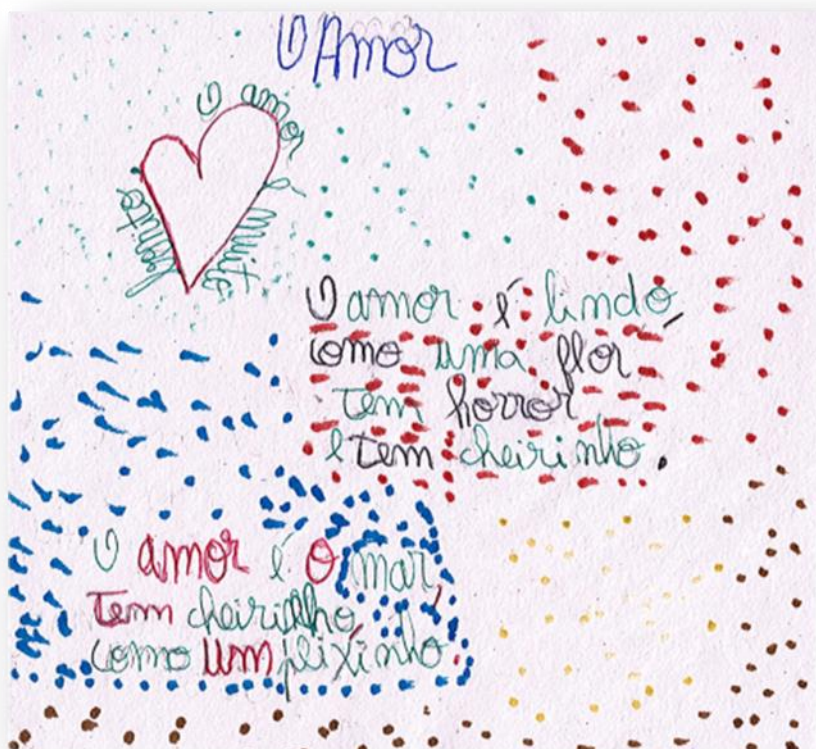 O Amor
O amor é muito bonito
O amor é lindo,
como uma flor
tem horror
e tem cheirinho.
O amor é o mar,
tem cheirinho,
como um peixinho.